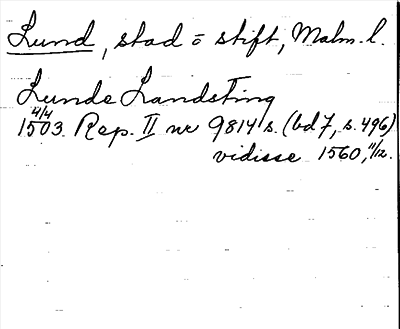 Lund, stad o stift, Malm. l.
Lunde Landsting
4/4
1503. Rep. II nr 9814 s. (bd 7, s. 496)
vidisse 1560, 11/12.